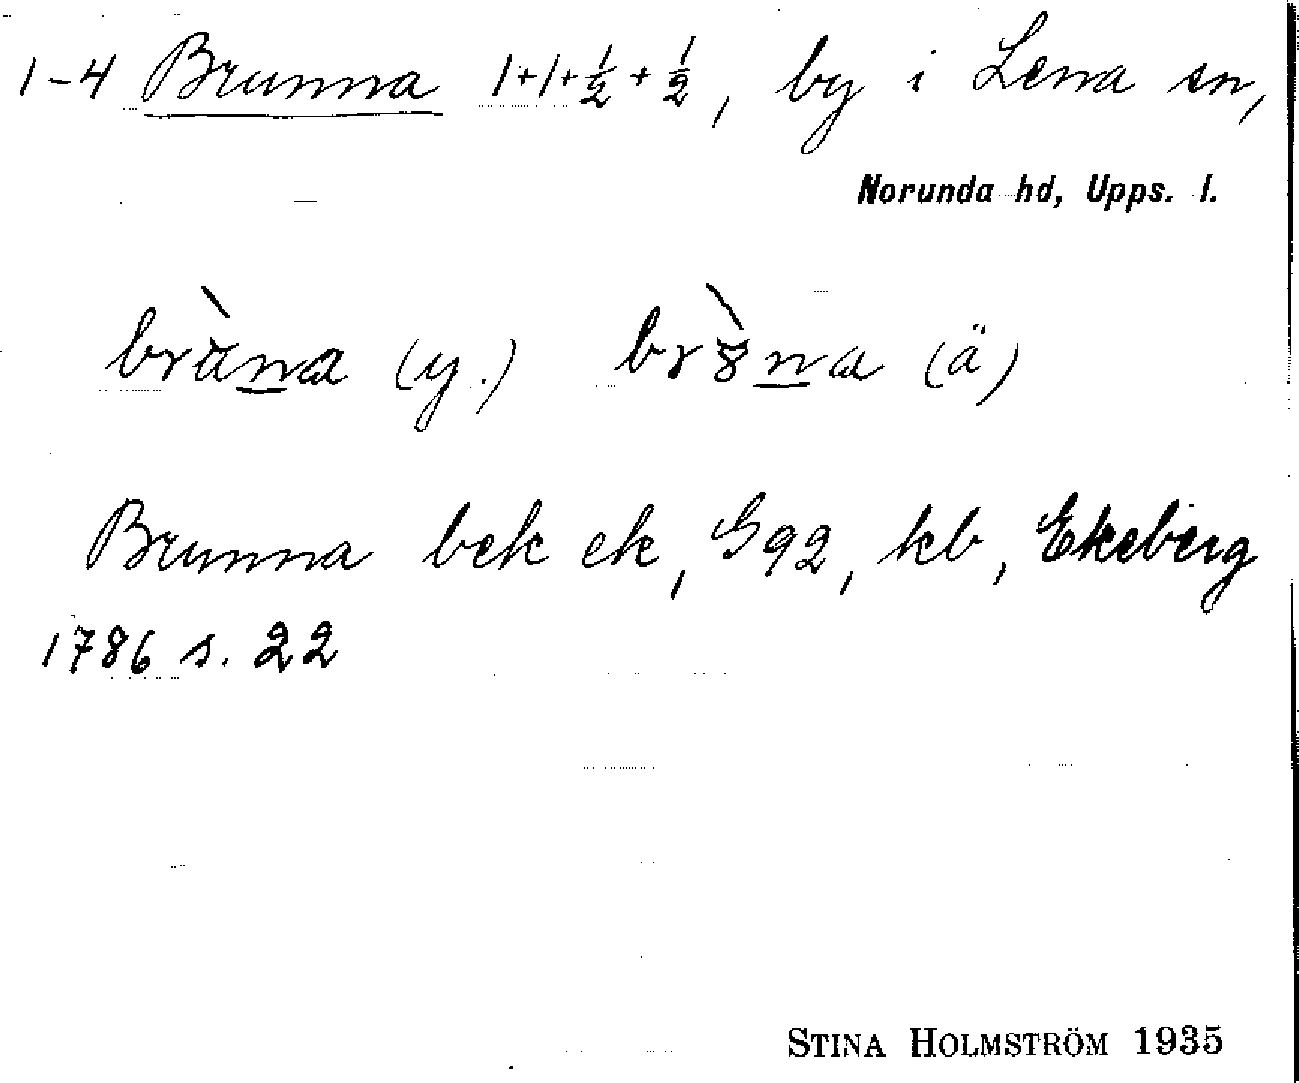 1-4 Brunna 1+1+½+½, by i Lena sn,
Norunda hd, Upps. l.
bràna (y.) br8̀na (ä)
Brunna bek ek, G92, kb, Ekeberg
1786 s. 22
STINA HOLMSTRÖM 1935